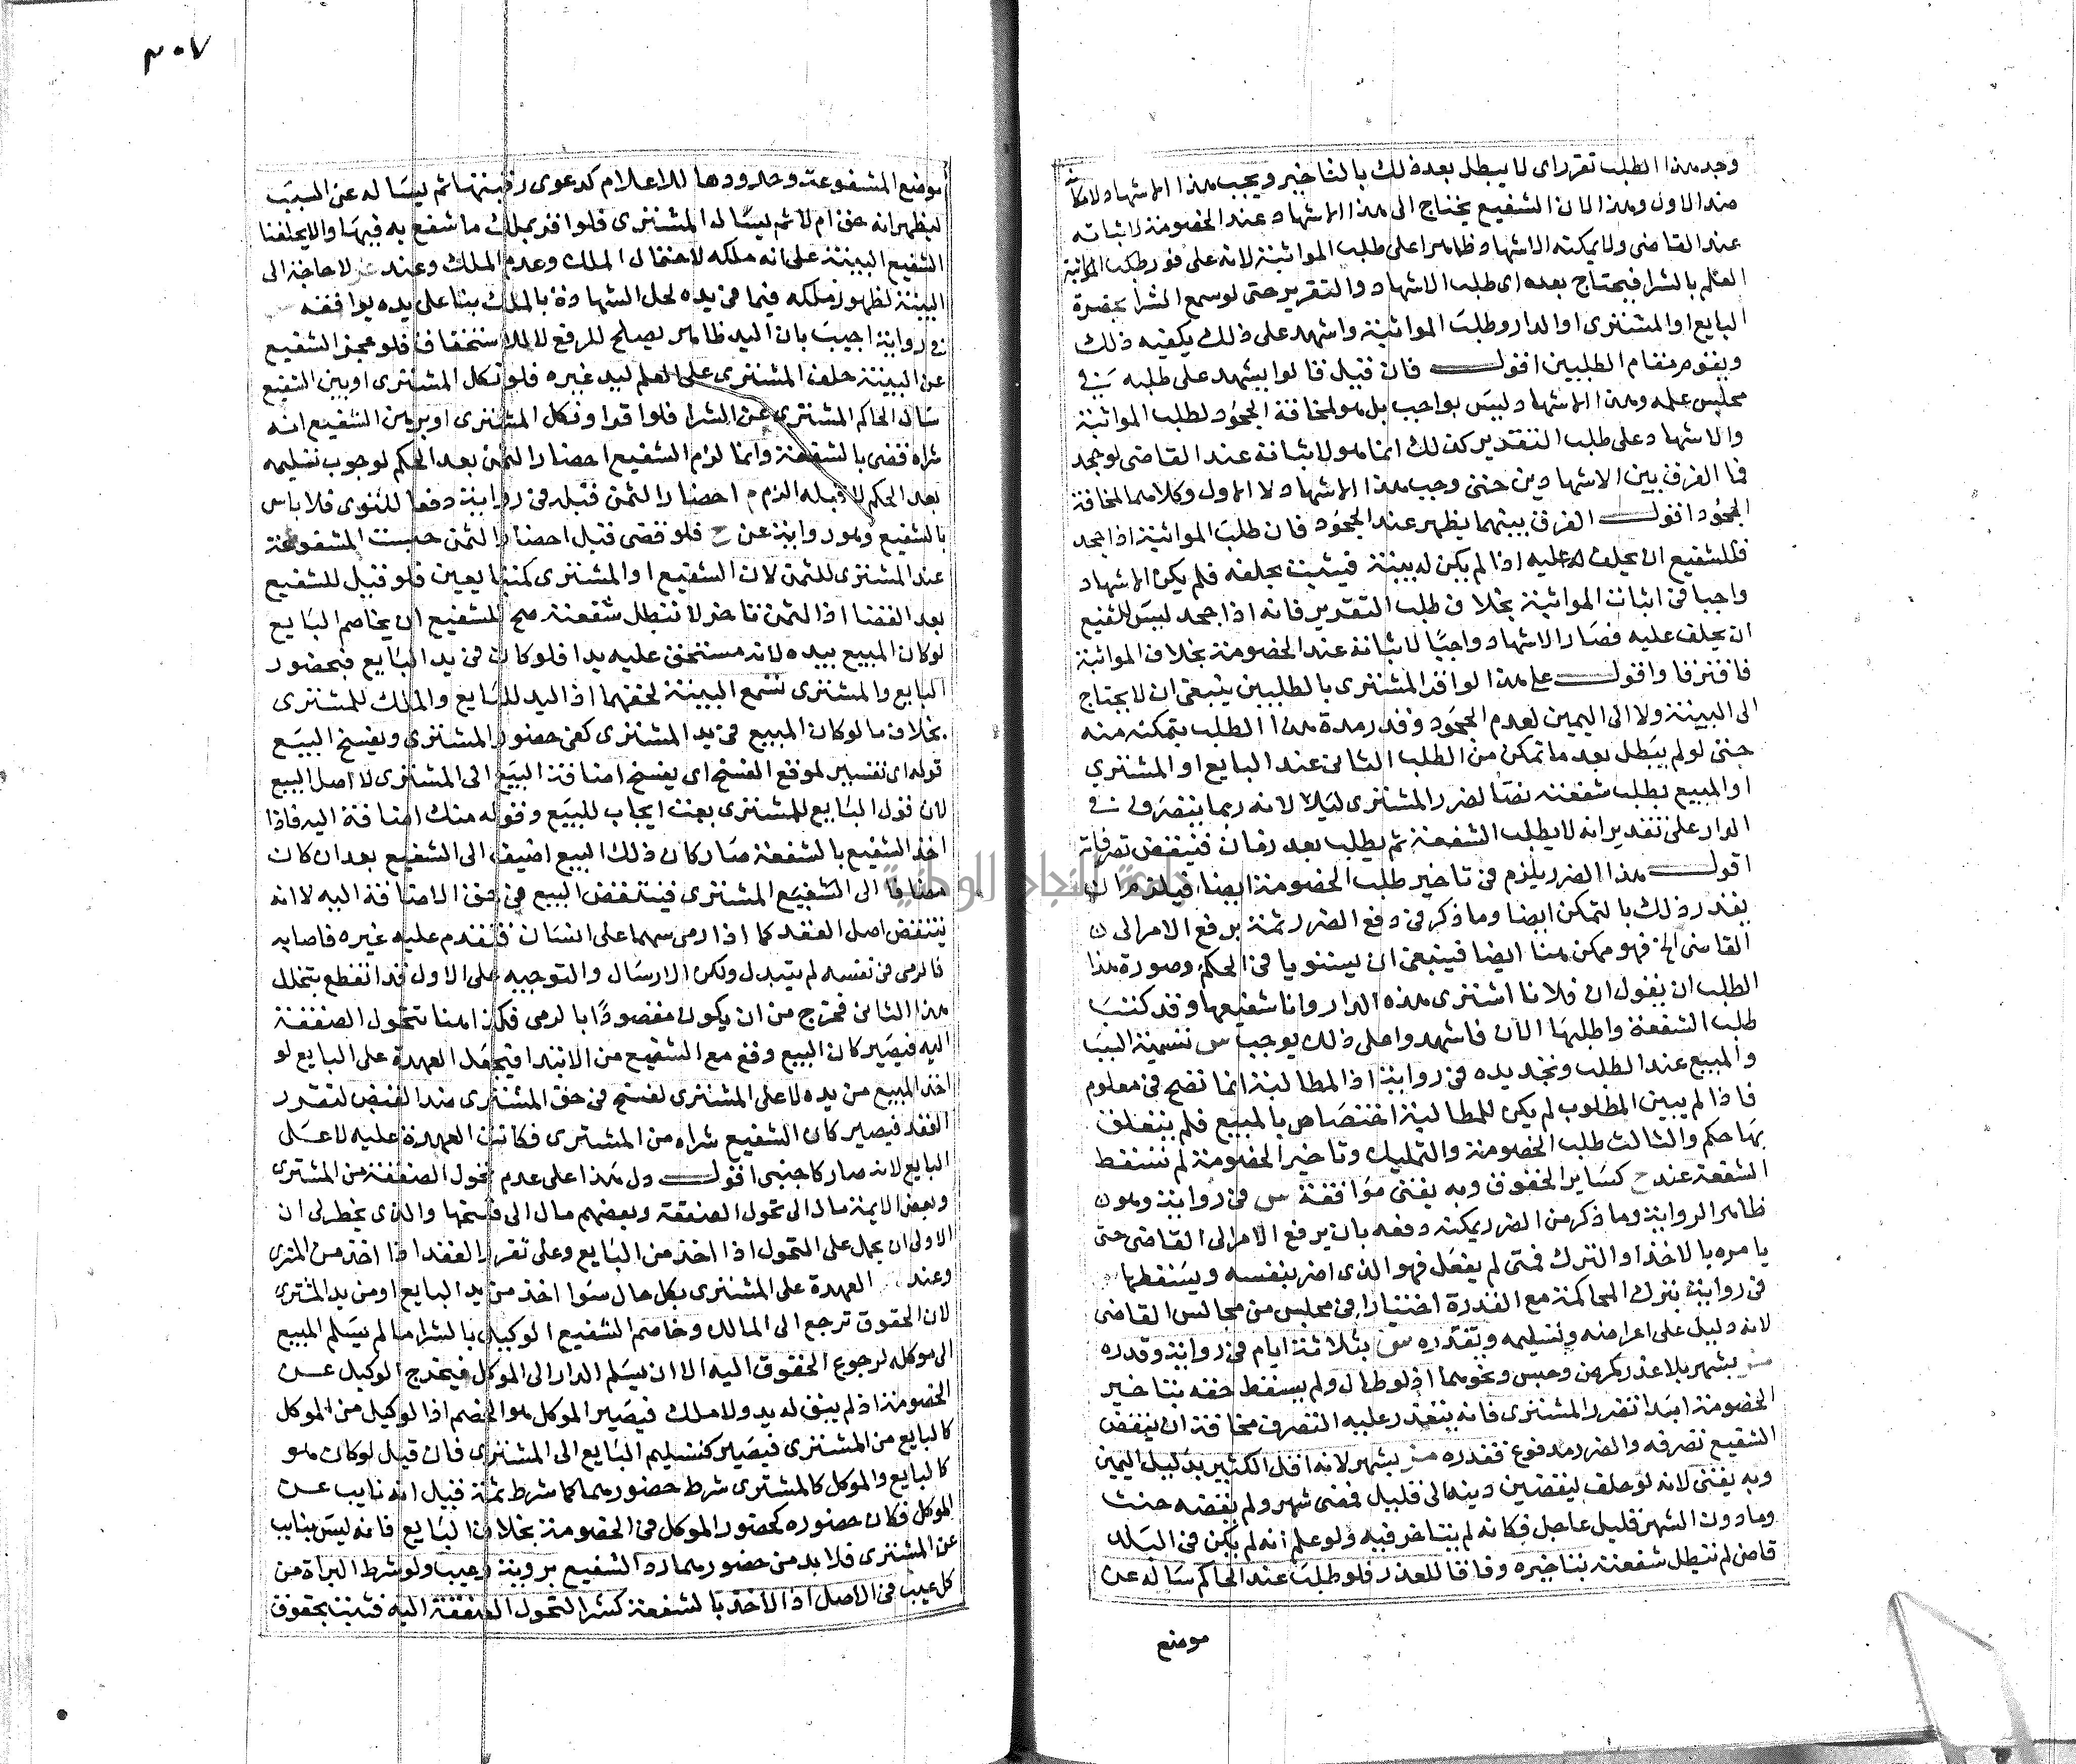 وجد هذا الطلب تقرر اى لا يبطل بعد ذلك بالتاخير ويجب هذا الاشهاد لامكانه
عند الاول وهذا لان الشفيع يحتاج الى هذا الاشهاد عند الخصومة لاثباته
عند القاضى ولا يمكنه الاشهاد ظاهرا على طلب المواثبة لانه على فور طلب المواثبة
العلم بالشرا فيحتاج بعده اى طلب الاشهاد والتقرير حتى لو سمع الشرا بحضرة
البايع او المشترى او الدار وطلب المواثبة واشهد على ذلك يكفيه ذلك
ويقوم مقام الطلبين اقول فان قيل قالوا يشهد على طلبه فى
مجلس علمه وهذا الاشهاد ليس بواجب بل هو لمخافة الجحود لطلب المواثبة
والاشهاد على طلب التقدير كذلك انما هو لاثباته عند القاضى لو جحد
فما الفرق بين الاشهادين حتى وجب هذا الاشهاد لا الاول وكلاهما لمخافة
الجحود اقول الفرق بينهما يظهر عند الجحود فان طلب المواثبة اذا جحد
فللشفيع ان يحلف له عليه اذا لم يكن له بينة فيثبت بحلفه فلم يكن الاشهاد
واجبا فى اثبات المواثبة بخلاف طلب التقدير فانه اذا جحد ليس للشفيع
ان يحلف عليه فصار الاشهاد واجبا لاثباته عند الخصومة بخلاف المواثبة
فافترقا واقول على هذا لو اقر المشترى بالطلبين ينبغى ان لا يحتاج
الى البينة ولا الى اليمين لعدم الجحود وقدر مدة هذا الطلب بتمكنه منه
حتى لو لم يبطل بعد ما تمكن من الطلب الثانى عند البايع او المشترى
او المبيع بطلب شفعته نصا لضرر المشترى ليلا لانه ربما يتصرف فى
الدار على تقدير انه لا يطلب الشفعة ثم يطلب بعد زمان فينقض تصرفاته
اقول هذا الضرر يلزم فى تاخير طلب الخصومة ايضا فيلزم ان
يقدر ذلك بالتمكن ايضا وما ذكر فى دفع الضرر ثمة برفع الامر الى
القاضى الخ فهو ممكن هنا ايضا فينبغى ان يستويا فى الحكم وصورة هذا
الطلب ان يقول ان فلانا اشترى هذه الدار وانا شفيعها وقد كنت
طلبت الشفعة واطلبها الان فاشهدوا على ذلك يوجب س تسمية البيت
والمبيع عند الطلب وتحديده فى رواية اذ المطالبة انما تصح فى معلوم
فاذا لم يبين المطلوب لم يكن للمطالبة اختصاص بالمبيع فلم يتعلق
بها حكم والثالث طلب الخصومة والتمليك وتاخير الخصومة لم تسقط
الشفعة عند ح كساير الحقوق وبه يفتى موافقة س فى رواية وهو
ظاهر الرواية وما ذكر من الضرر يمكنه دفعه بان يرفع الامر الى القاضى حتى
يامره بالاخذ او الترك فمتى لم يفعل فهو الذى اضر بنفسه ويسقطها
فى رواية بترك المحاكمة مع القدرة اختيارا فى مجلس من مجالس القاضى
لانه دليل على اعراضه وتسليمه وتقدره س بثلاثة ايام فى رواية وقدره
بشهر بلا عذر كمرض وحبس ونحوهما اذ لو طال ولم يسقط حقه بتاخير
الخصومة ابدا تضرر المشترى فانه يتعذر عليه التصرف مخافة ان ينقض
الشفيع تصرفه والضرر مدفوع فقدره بشهر لانه اقل الكثير بدليل اليمين
وبه يفتى لانه لو حلف ليقضين دينه الى قليل فمضى شهر ولم يقضه حنث
وما دون الشهر قليل عاجل فكانه لم يتاخر فيه ولو علم انه لم يكن فى البلد
قاض لم تبطل شفعته بتاخيره وفاقا للعذر فلو طلبت عند الحاكم ساله عن
موضع
٣٠٧
موضع المشفوعة وحدودها للاعلام كدعوى رقبتها ثم يساله عن السبب
ليظهر انه حق ام لا ثم يسال المشترى فلو اقر بملك ما شفع به فبها والا يحلفنا
الشفيع البينة على انه ملكه لاحتمال الملك وعدم الملك وعند لا حاجة الى
البينة لظهور ملكه فيما فى يده لحل الشهادة بالملك بنا على يده يوافقه
فى رواية اجيب بان اليد ظاهر يصلح للرفع لا للاستحقاق فلو عجز الشفيع
عن البينة حلف المشترى على العلم ليد غيره فلو نكل المشترى او بين الشفيع
سال الحاكم المشترى عن الشرا فلو اقر او نكل المشترى او برهن الشفيع انه
شراه قضى بالشفعة وانما لزام الشفيع احضار الثمن بعد الحكم لوجوب تسليمه
بعد الحكم لا قبله الزم م احضار الثمن قبله فى رواية دفعا للتوى فلا باس
بالشفيع وهو رواية عن ح فلو قضى قبل احضار الثمن حبست المشفوعة
عند المشترى للثمن لان الشفيع او المشترى كمتبايعين فلو قيل للشفيع
بعد القضا اد الثمن فاخر لا تبطل شفعته صح للشفيع ان يخاصم البايع
لو كان المبيع بيده لانه مستحق عليه يدا فلو كان فى يد البايع فبحضور
البايع والمشترى تسمع البينة لحقهما اذ اليد للبايع والملك للمشترى
بخلاف ما لو كان المبيع فى يد المشترى كفى حضور المشترى ويفسخ البيع
قوله اى تفسير لموقع الفسخ اى يفسخ اضافة البيع الى المشترى لا اصل البيع
لان قول البايع للمشترى بعت ايجاب للبيع وقوله منك اضافة اليه فاذا
اخذ الشفيع بالشفعة صار كان ذلك البيع اضيف الى الشفيع بعد ان كان
مضافا الى الشفيع المشترى فينتقض البيع فى حق الاضافة اليه لا انه
ينتقض اصل العقد كما اذا رمى سهما على انسان فتقدم عليه غيره فاصابه
فالرمى فى نفسه لم يتبدل ولكن الارسال والتوجيه على الاول قد انقطع بتخلل
هذا الثانى فخرج من ان يكون مقصودا بالرمى فكذا هنا تتحول الصفقة
اليه فيصير كان البيع وقع مع الشفيع من الابتدا فتجعل العهدة على البايع لو
اخذ المبيع من يده لا على المشترى لفسخ فى حق المشترى هذا القبض لتقرر
العقد فيصير كان الشفيع شراه من المشترى فكانت العهدة عليه لا على
البايع لانه صار كاجنبى اقول دل هذا على عدم تحول الصفقة من المشترى
وبعض الايمة مال الى تحول الصفقة وبعضهم مال الى فسخها والذى يخطر لى ان
الاولى ان يحمل على التحول اذا اخذ من البايع وعلى تقرر العقد اذا اخذ من المشترى
وعند العهدة على المشترى بكل حال سوا اخذ من يد البايع او من يد المشترى
لان الحقوق ترجع الى المالك وخاصم الشفيع الوكيل بالشرا ما لم يسلم المبيع
الى موكله لرجوع الحقوق اليه الا ان يسلم الدار الى الموكل فيخرج الوكيل عن
الخصومة اذ لم يبق له يد ولا ملك فيصير الموكل هو الخصم اذ الوكيل من الموكل
كالبايع من المشترى فيصير كتسليم البايع الى المشترى فان قيل لو كان هو
كالبايع والموكل كالمشترى شرط حضورهما كما شرط ثمة قيل انه نايب عن
الموكل فكان حضوره كحضور الموكل فى الخصومة بخلاف البايع فانه ليس بنايب
عن المشترى فلا بد من حضورهما رد الشفيع بروية وعيب ولو شرط البراة من
كل عيب فى الاصل اذ الاخذ بالشفعة كشرا لتحول الصفقة اليه فتثبت بحقوق